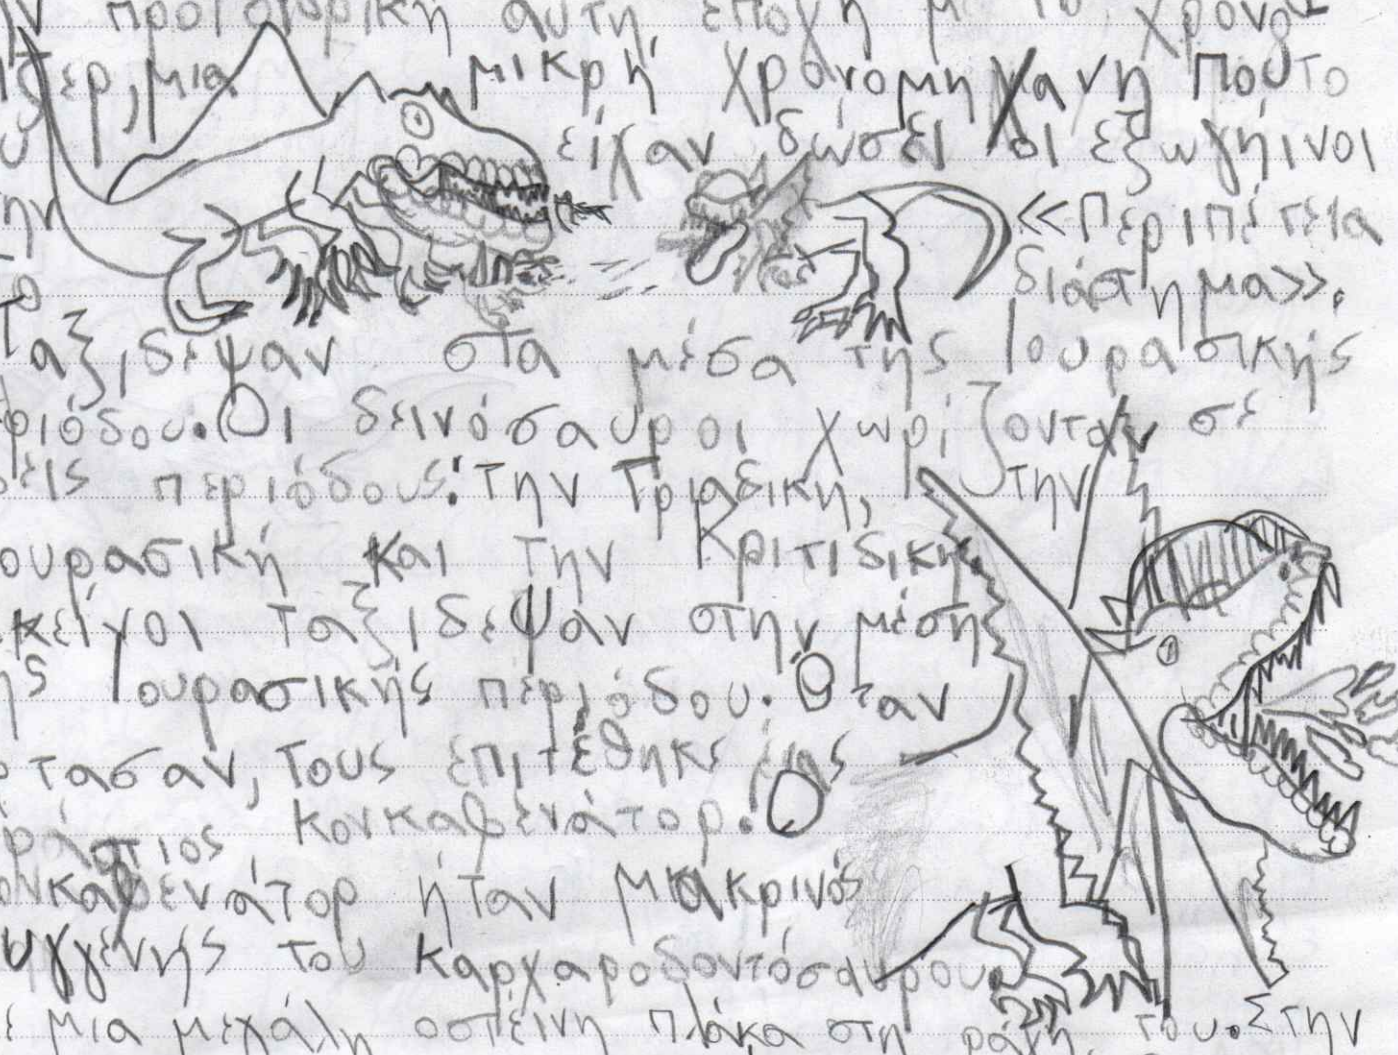 προϊστορική αυτή εποχή με το χρονο
ιζερ, μια μικρή χρονομηχανή που το
είχαν δώσει οι εξωγήινοι
ην «Περιπέτεια
το διάστημα».
Ταξιδεψαν στα μέσα της Ιουρασικής
ριόδου. Οι δεινόσαυροι χωρίζονταν σε
εις περιόδους: την Τριαδική, την
ουρασική και την Κριτιδική
κείνοι ταξιδεψαν στην μέση
ης Ιουρασικής περιόδου. Όταν
τασαν, τους επιτέθηκε ένας
ράστιος κονκαβενάτορ. Ο
ονκαβενάτορ ήταν μακρινός
υγγενής του Καρχαροδοντόσαυρου.
ε μια μεγάλη οστέινη πλάκα στη ράχη του. Στην